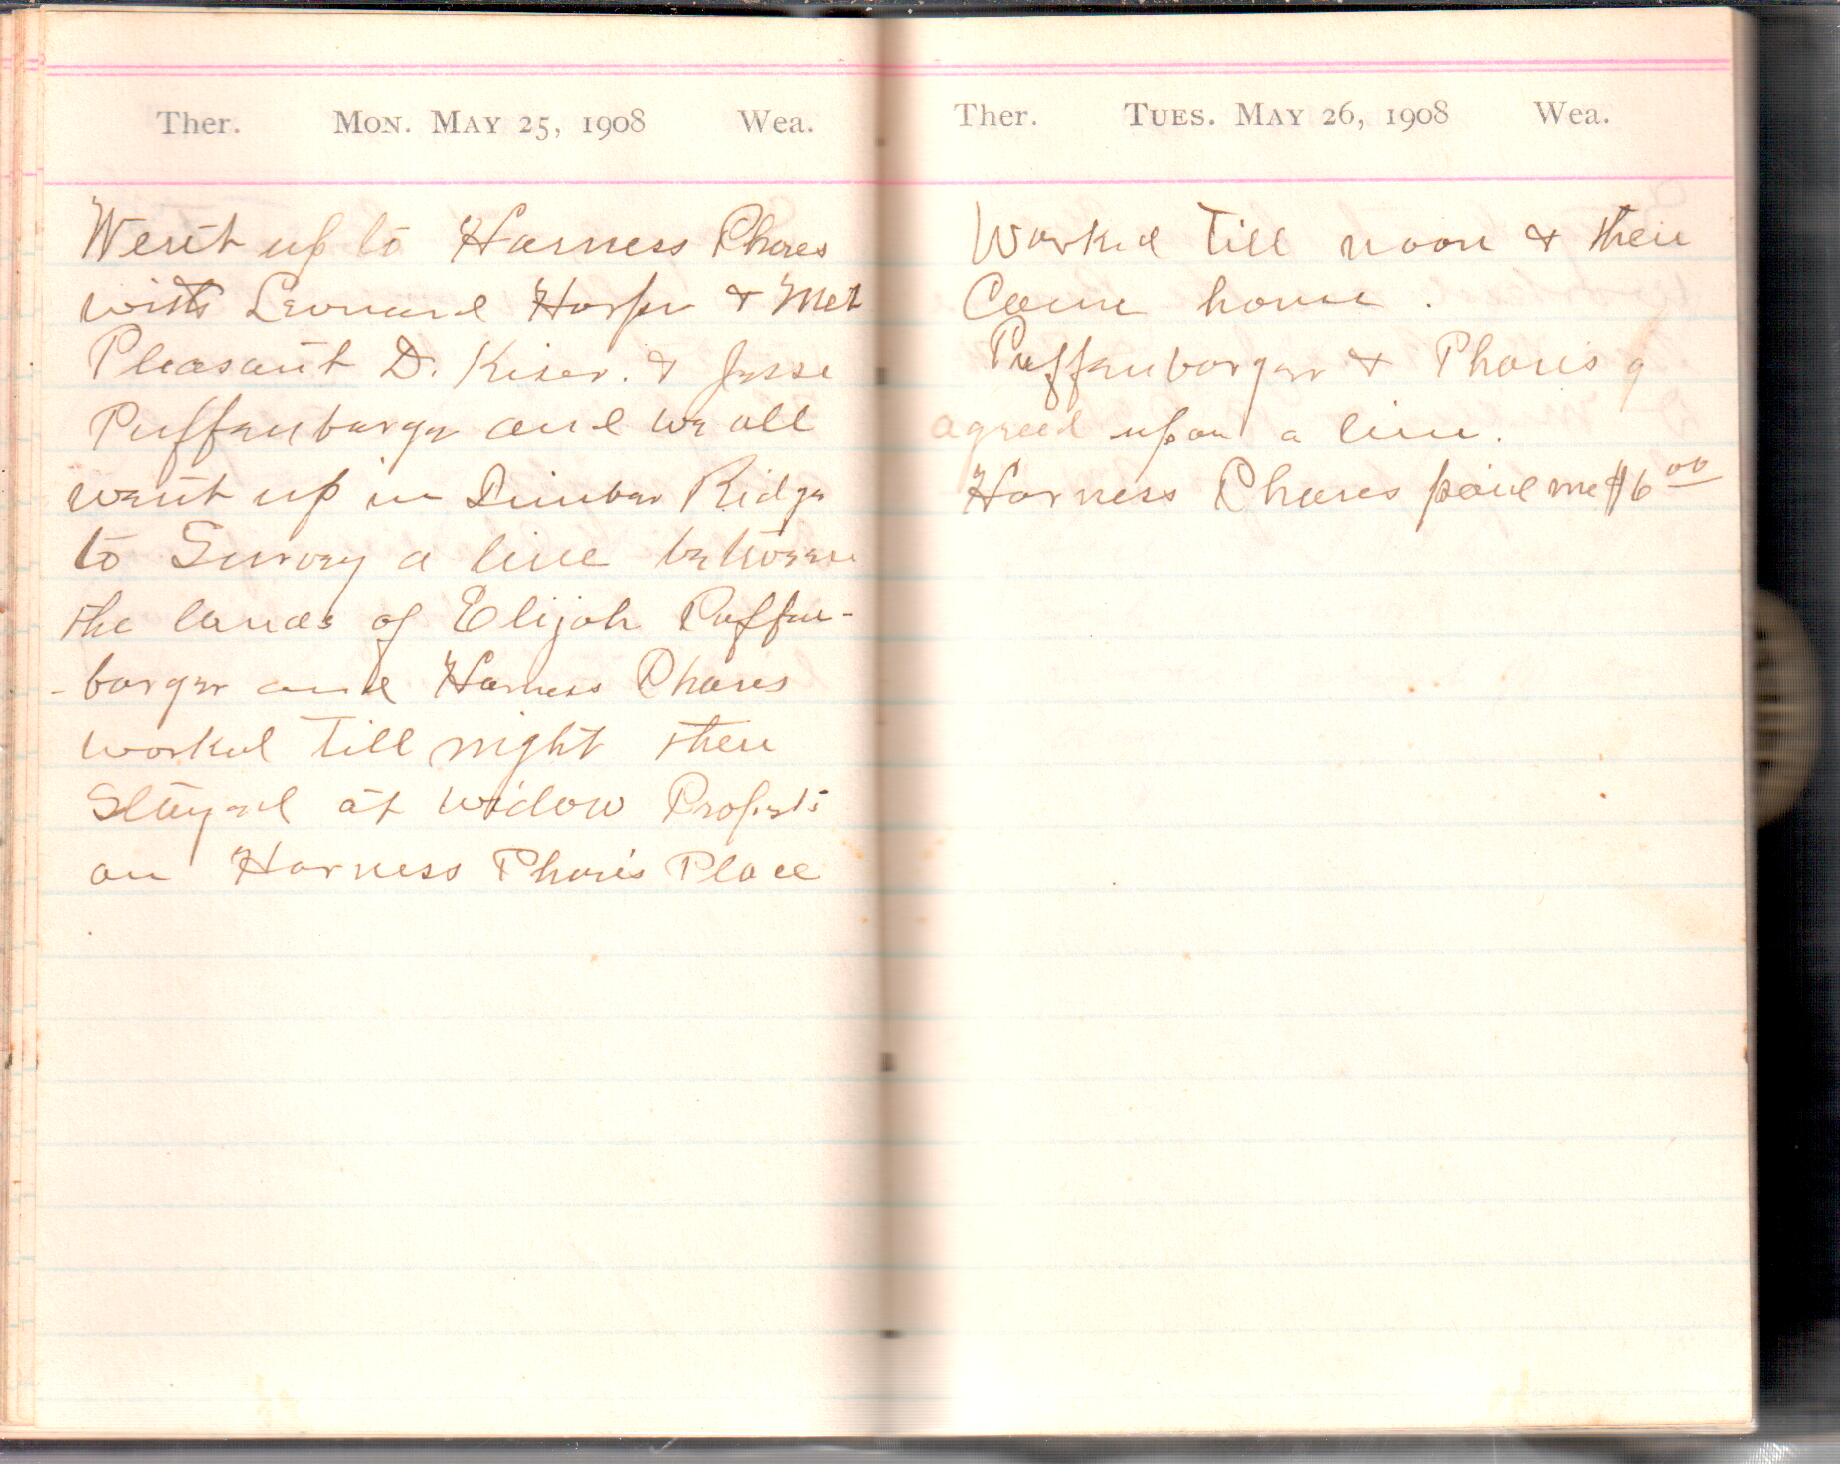 Ther. MON. MAY 25, 1908 Wea.
Went up to Harness Phares
with Leonard Harper & Met
Pleasant D. Kiser. & Jesse
Puffenbarger and we all
went up in Dunbar Ridge
to Survey a line between
the lands of Elijah Puffen-
-barger and Harness Phares
worked Till night then
Stayed at widow Propsts
on Harness Pharis Place
Ther. TUES. MAY 26, 1908 Wea.
Worked Till noon & then
Came home.
Puffenbarger & Pharis a
agreed upon a line.
Harness Phares paid me $6 00